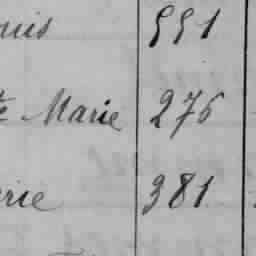 uis 551
te Marie 276
rie 381